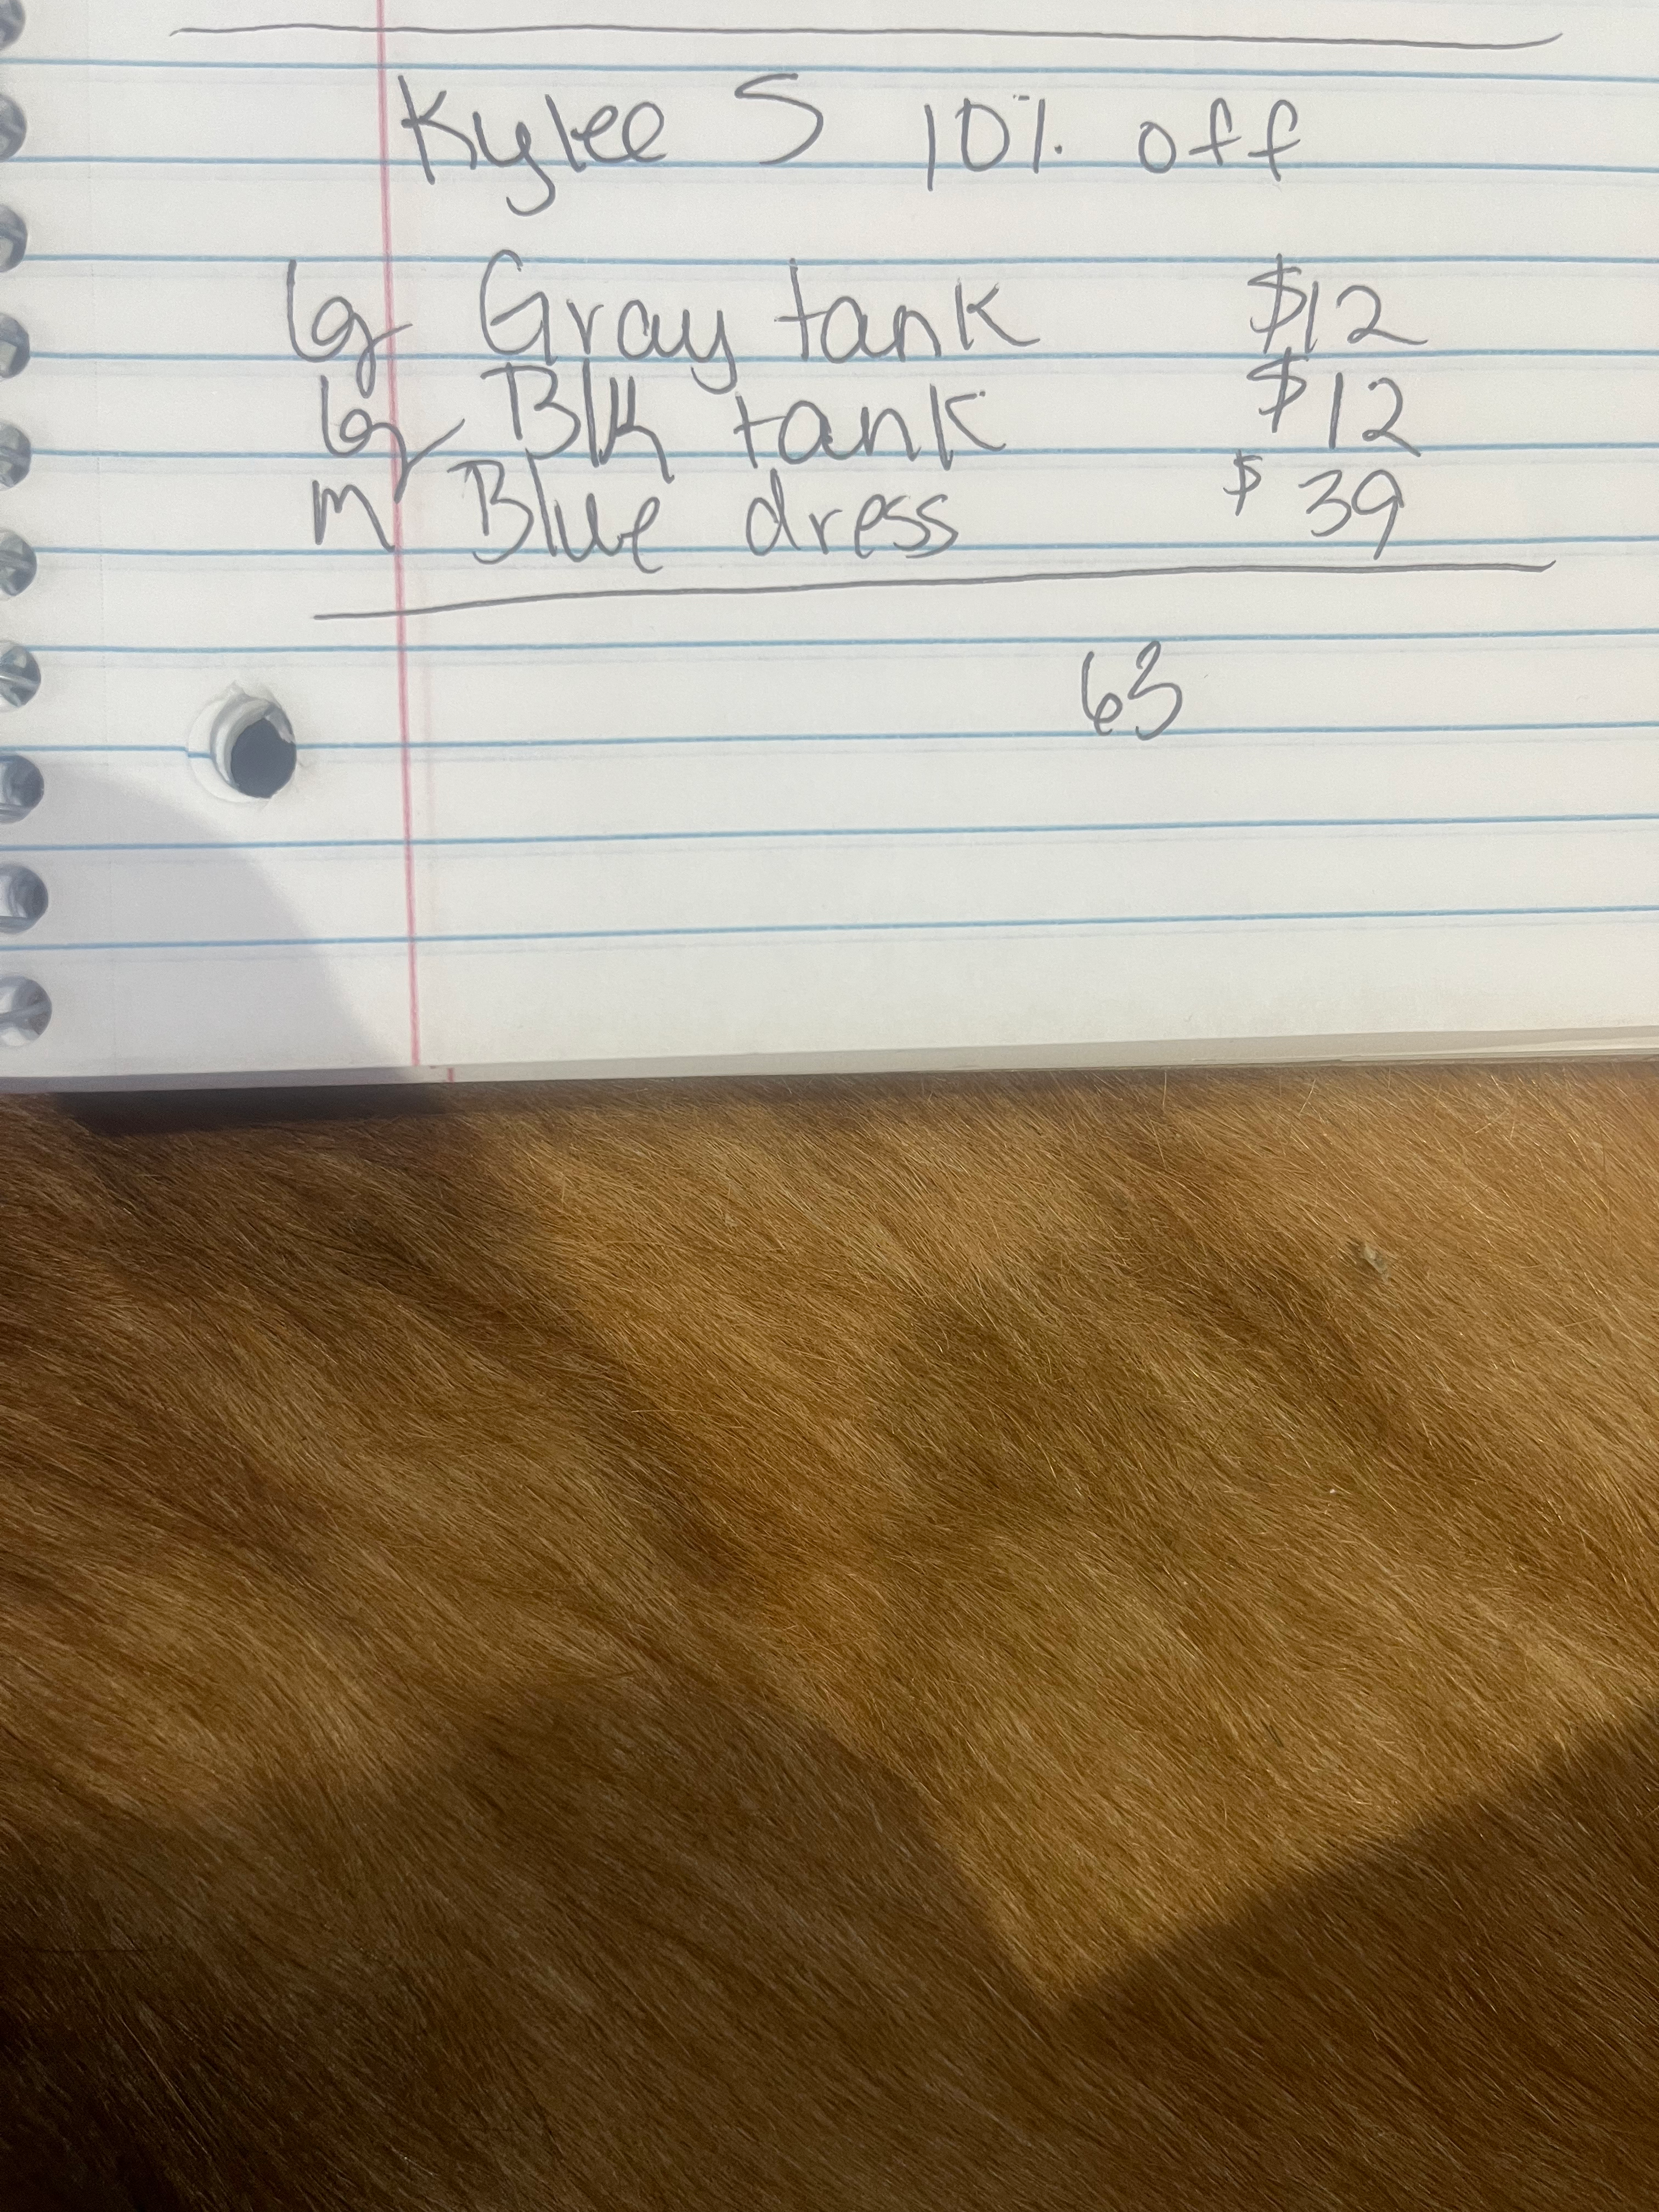 Kylee S 10% off
lg Gray tank $12
lg Blk tank $12
m Blue dress $39
63